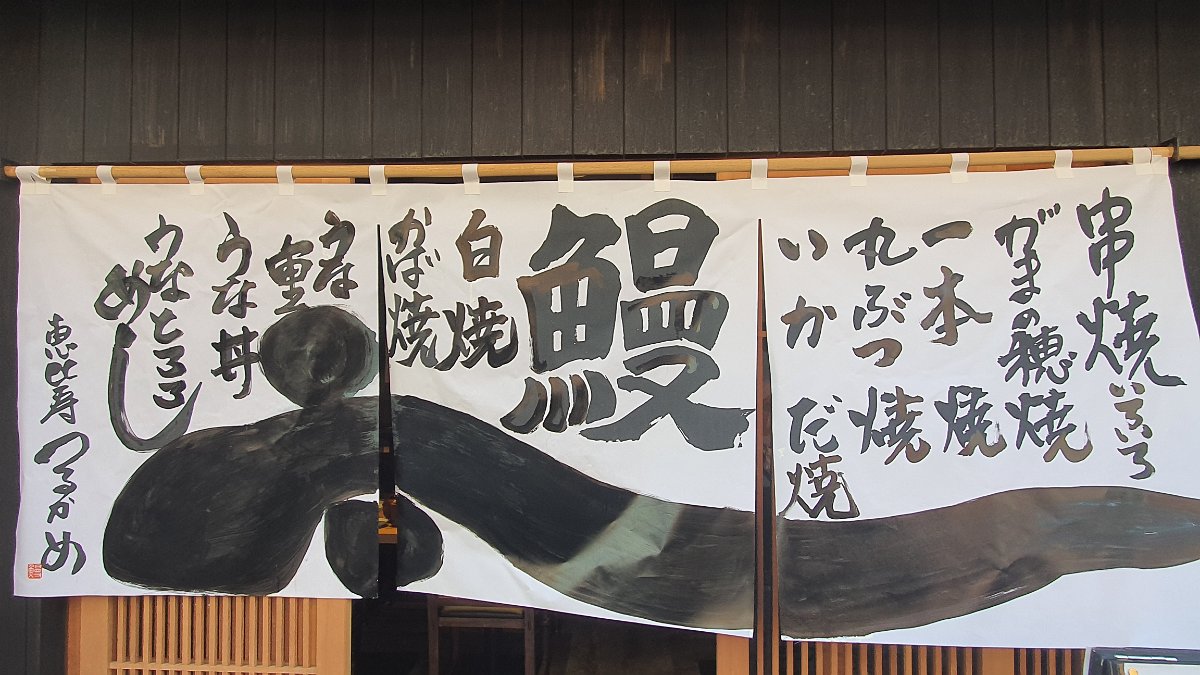 串焼いろいろ
がまの穂焼
一本焼
丸ぶつ焼
いかだ焼
鰻
白焼
かば焼
うな重
うな丼
うなとろろめし
恵比寿つるかめ